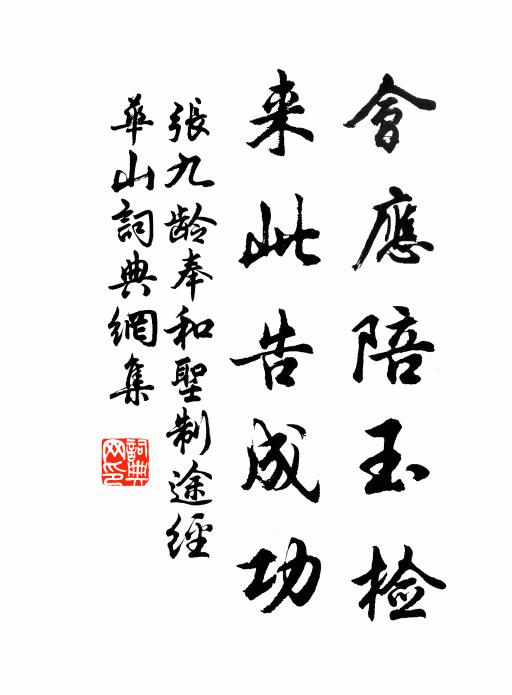 會應陪玉检
来此告成功
張九龄奉和聖制途經
華山詞典網集
詞典网印